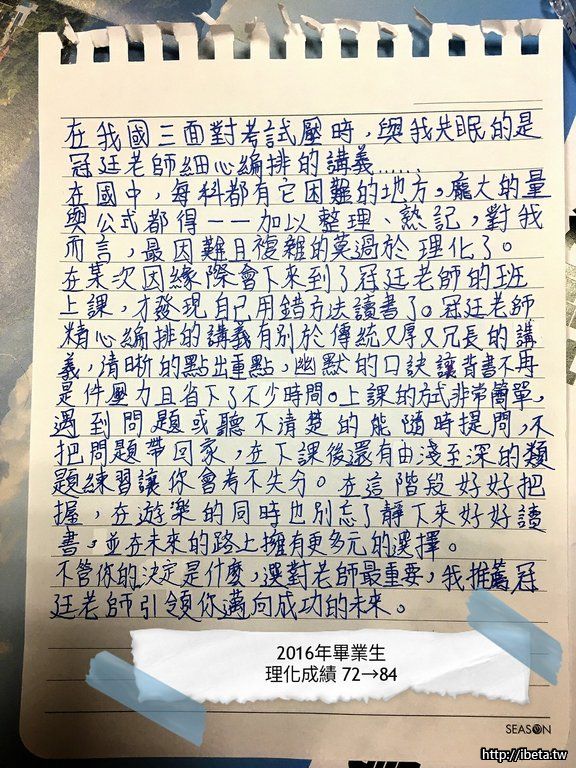 在我國三面對考試壓時，與我失眠的是
冠廷老師細心編排的講義……
在國中，每科都有它困難的地方。龐大的量
與公式都得一一加以整理、熟記，對我
而言，最困難且複雜的莫過於理化了。
在某次因緣際會下來到了冠廷老師的班
上課，才發現自己用錯方法讀書了。冠廷老師
精心編排的講義有別於傳統又厚又冗長的講
義，清晰的點出重點，幽默的口訣讓背書不再
是件壓力且省下了不少時間。上課的方式非常簡單，
遇到問題或聽不清楚的能隨時提問，不
把問題帶回家，在下課後還有由淺至深的類
題練習讓你會考不失分。在這階段好好把
握，在遊樂的同時也別忘了靜下來好好讀
書。並在未來的路上擁有更多元的選擇。
不管你的決定是什麼，選對老師最重要，我推薦冠
廷老師引領你邁向成功的未來。
2016年畢業生
理化成績 72→84
SEASON
http://ibeta.tw